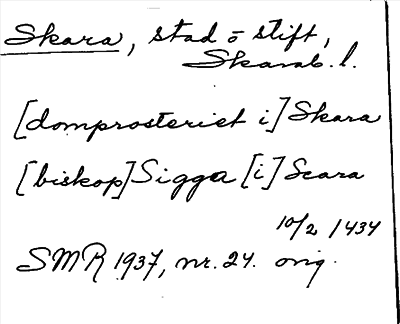 Skara, stad o stift,
Skarab. l.
[domprosteriet i] Skara
[biskop] Sigga [i] Scara
10/2 1434
SMR 1937, nr. 24. orig.